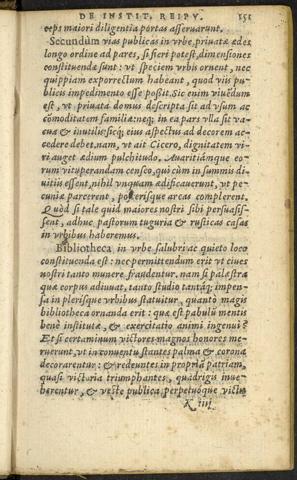 DE INSTIT. REIPV. 151
ceps maiori diligentia portas asseruarunt.
Secundùm vias publicas in vrbe, priuatæ ædes
longo ordine ad pares, si fieri potest, dimensiones
constituendæ sunt: vt speciem vrbis ornent, nec
quippiam exporrectum habeant, quod viis pu-
blicis impedimento esse possit. Sic enim viuẽdum
est, vt priuata domus descripta sit ad vsum ac
cõmoditatem familiæ: neq; in ea pars vlla sit va-
cua & inutilis: sicq; eius aspectus ad decorem ac-
cedere debet, nam, vt ait Cicero, dignitatem vi-
ri auget ædium pulchitudo. Auaritiámque eo-
rum vituperandam censeo, qui cùm in summis di-
uitiis essent, nihil vnquam ædificauerunt, vt pe-
cuniæ parcerent, posterisque arcas complerent.
Quòd si tale quid maiores nostri sibi persuasis-
sent, adhuc pastorum tuguria & rusticas casas
in vrbibus haberemus.
Bibliotheca in vrbe salubri ac quieto loco
constituenda est: nec permittendum erit vt ciues
nostri tanto munere fraudentur. nam si palæstra
quæ corpus adiuuat, tanto studio tantáq; impen-
sa in plerisque vrbibus statuitur, quanto magis
bibliotheca ornanda erit: quæ est pabulũ mentis
benè institutæ, & exercitatio animi ingenui?
Et si certaminum victores magnos honores me-
ruerunt, vt in conuentu stantes palma & corona
decorarentur: & redeuntes in propriã patriam,
quasi victoria triumphantes, quadrigis inue-
herentur, & veste publica perpetuóque victu
K iiij